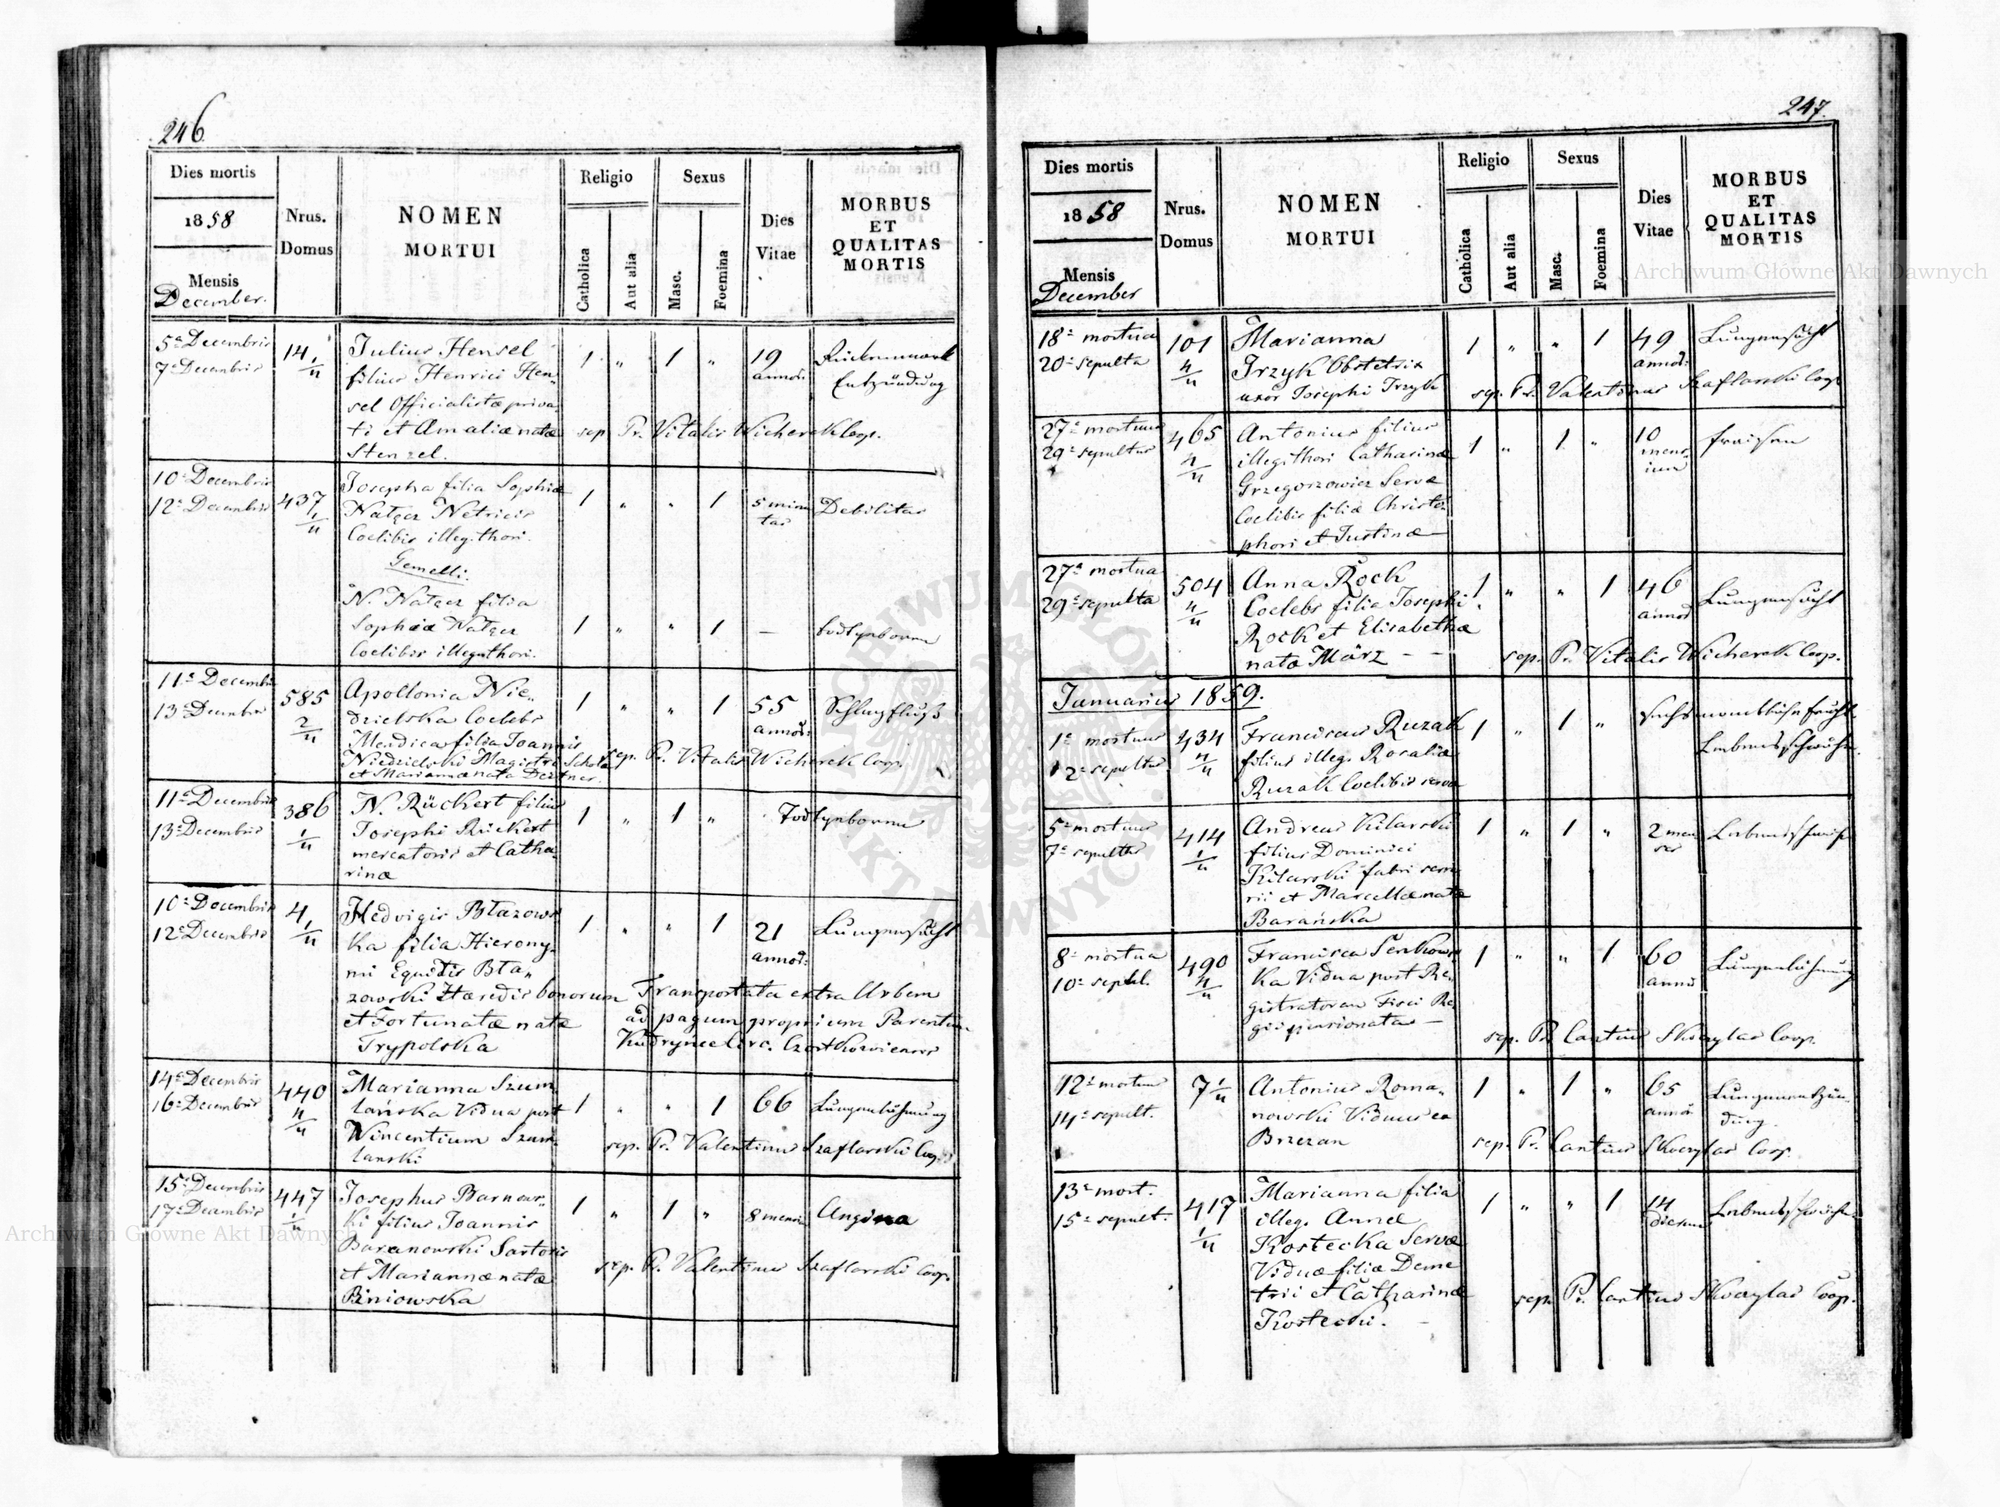 246.
Dies mortis
1858
Mensis
December.
Nrus.
Domus
NOMEN
MORTUI
Religio
Catholica
Aut alia
Sexus
Masc.
Foemina
Dies
Vitae
MORBUS
ET
QUALITAS
MORTIS
5ª Decembris
7ª Decembris
14 1/4
Julius Hensel
filius Henrici Hen-
sel Officialistæ priva-
ti et Amaliæ natæ
Stenzel.
1 " 1 " 19 annor: Rückenmark
Entzündung
sep. Pr. Vitalis Wicherek Coop.
10ª Decembris
12ª Decembris
437 1/4
Josepha filia Sophiæ
Natzer Netricis
Coelibis illeg. thori.
1 " " 1 5 minu
tas
Debilitas
Gemelli.
N. Natzer filia
Sophiæ Natzer
Coelibis illeg. thori.
1 " " 1 — todtgeboren
11ª Decembris
13ª Decembris
585 2/4
Apollonia Nie-
dzielska Coelebs
Mendica filia Joannis
Niedzielski Magistri Scholæ
et Mariannæ nata
1 " " 1 55 annor: Schlagfluß
sep. Pr. Vitalis Wicherek Coop.
11ª Decembris
13ª Decembris
386 1/4
N. Rückert filius
Josephi Rückert
mercatoris et Catha-
rinæ
1 " 1 " Todtgeboren
10ª Decembris
12ª Decembris
4 1/4
Hedvigis Błazows
ka filia Hierony-
mi Equitis Bła-
zowski Hæredis bonorum
et Fortunatæ natæ
Trypolska
1 " " 1 21 annor: Lungensucht
Transportata extra Urbem
ad pagum proprium Parentum
Kudrynce Circ. Czortkoviensis
14ª Decembris
16ª Decembris
440 4/4
Marianna Szum
lańska Vidua post
Wincentium Szum-
lanski
1 " " 1 66 Lungenlähmung
sep. Pr. Valentinus Szaflarski Coop.
15ª Decembris
17ª Decembris
447 1/4
Josephus Barnow-
ki filius Joannis
Baranowski Sartoris
et Mariannæ natæ
Biniowska
1 " 1 " 8 mensiu Angina
sep. Pr. Valentinus Szaflarski Coop.
247.
Dies mortis
1858
Mensis
December
Nrus.
Domus
NOMEN
MORTUI
Religio
Catholica
Aut alia
Sexus
Masc.
Foemina
Dies
Vitae
MORBUS
ET
QUALITAS
MORTIS
18ª mortua
20ª sepulta
101 4/4
Marianna
Irzyk Obstetrix
uxor Josephi Irzyk
1 " " 1 49 annor: Lungensucht
sep. Pr. Valentinus Szaflarski Coop.
27ª mortuus
29ª sepultus
465 4/4
Antonius filius
illegi thori Catharinæ
Grzegorzowicz Servæ
Coelibis filiæ Christo-
phori et Justinæ
1 " 1 " 10 mens-
ium
Fraisen
27ª mortua
29ª sepulta
504 4/4
Anna Rock
Coelebs filia Josephi
Rock et Elisabethæ
natæ März
1 " " 1 46 annor Lungensucht
sep. Pr. Vitalis Wicherek Coop.
Januarius 1859.
1ª mortuus
2ª sepultus
434 4/4
Franciscus Ruzak
filius illeg. Rosaliæ
Ruzak Coelibis servæ
1 " 1 " sechsmonatliche Frucht.
Lebensschwäche.
5ª mortuus
7ª sepultus
414 1/4
Andreas Kilarski
filius Dominici
Kilarski fabri serra
rii et Marcellæ natæ
Barańska
1 " 1 " 2 men
ses
Lebensschwäche
8ª mortua
10ª sepult.
490 4/4
Francisca Senkows
ka Vidua post Re-
gistratorem Fisci Re-
gii pensionata
1 " " 1 60 annor Lungenlähmung
sep. Pr. Cantius Skwerylas Coop.
12ª mortuus
14ª sepult.
7 1/4
Antonius Roma-
nowski Viduus ex
Brzezan
1 " 1 " 65 annor Lungenentzün-
dung.
sep. Pr. Cantius Skwerylas Coop.
13ª mort.
15ª sepult.
417 1/4
Marianna filia
illeg. Annæ
Kostecka Servæ
Viduæ filiæ Deme
trii et Catharinæ
Kostecki.
1 " " 1 14 dierum Lebensschwäche
sep. Pr. Cantius Skwerylas Coop.
Archiwum Główne Akt Dawnych
Archiwum Główne Akt Dawnych
ARCHIWUM GŁÓWNE
AKT DAWNYCH